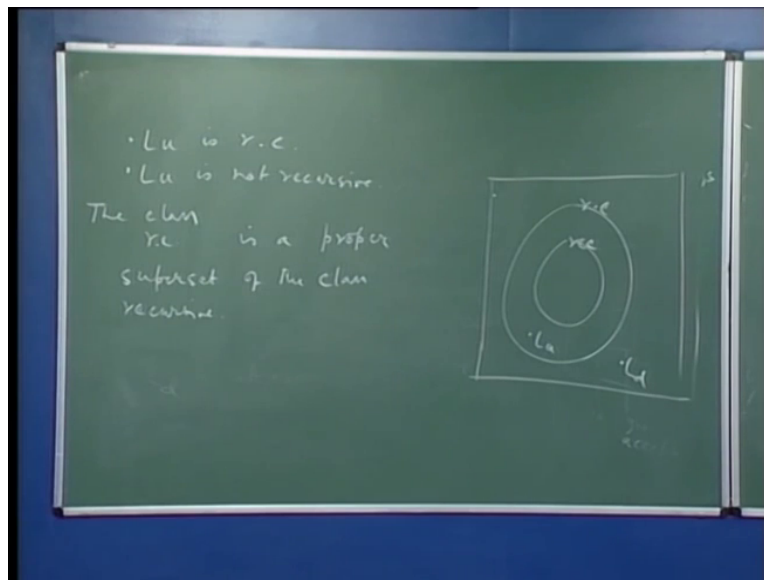 · Lu is r.e.
· Lu is not recursive.
The class
r.e is a proper
superset of the class
recursive.
r.e
rec
· Lu
· Ld